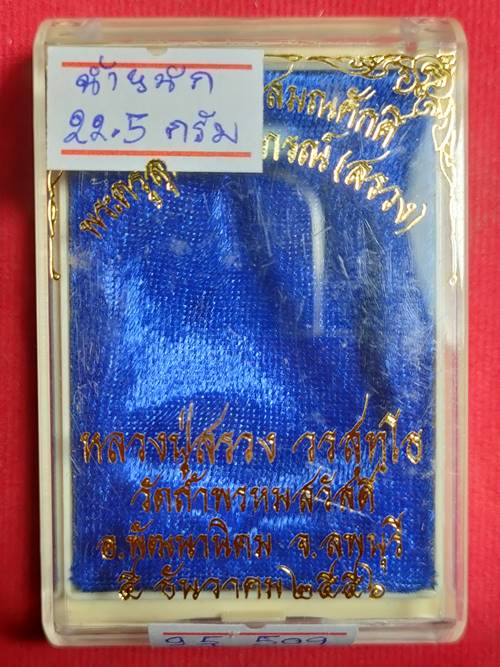 น้ำหนัก
22.5 กรัม
สมณศักดิ์
(สรวง)
หลวงปู่สรวง วรสุทฺโธ
วัดถ้ำพรหมสวัสดิ์
อ.พัฒนานิคม จ.ลพบุรี
๕ ธันวาคม ๒๕๕๖